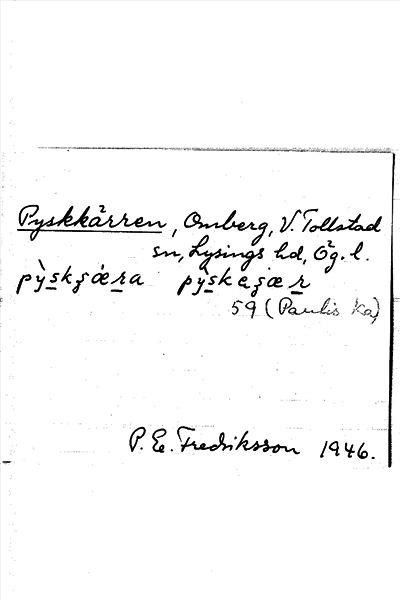 Pyskkärren, Omberg, V. Tollstad
sn, Lysings hd, Ög. l.
59 (Paulis ka)
P. E. Fredriksson 1946.